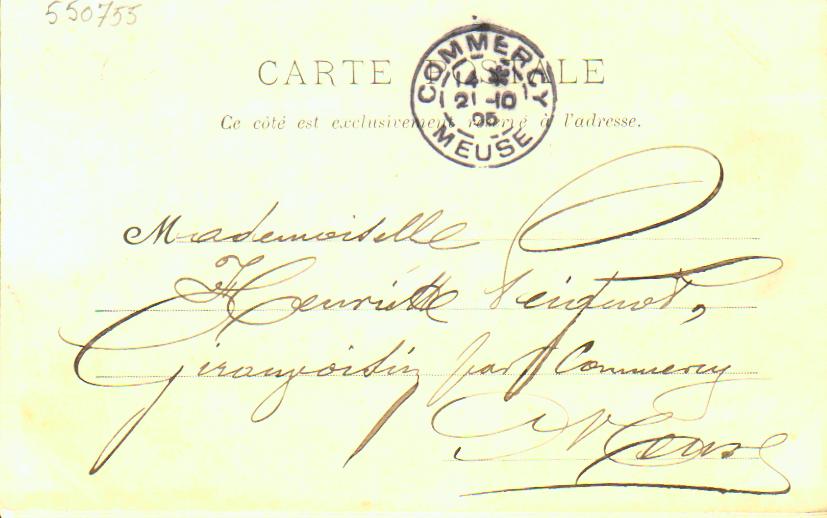 550755
CARTE POSTALE
Ce côté est exclusivement réservé à l'adresse.
COMMERCY
14
21-10
MEUSE
Mademoiselle
Henriette
Girauvoisin par Commercy
Meuse